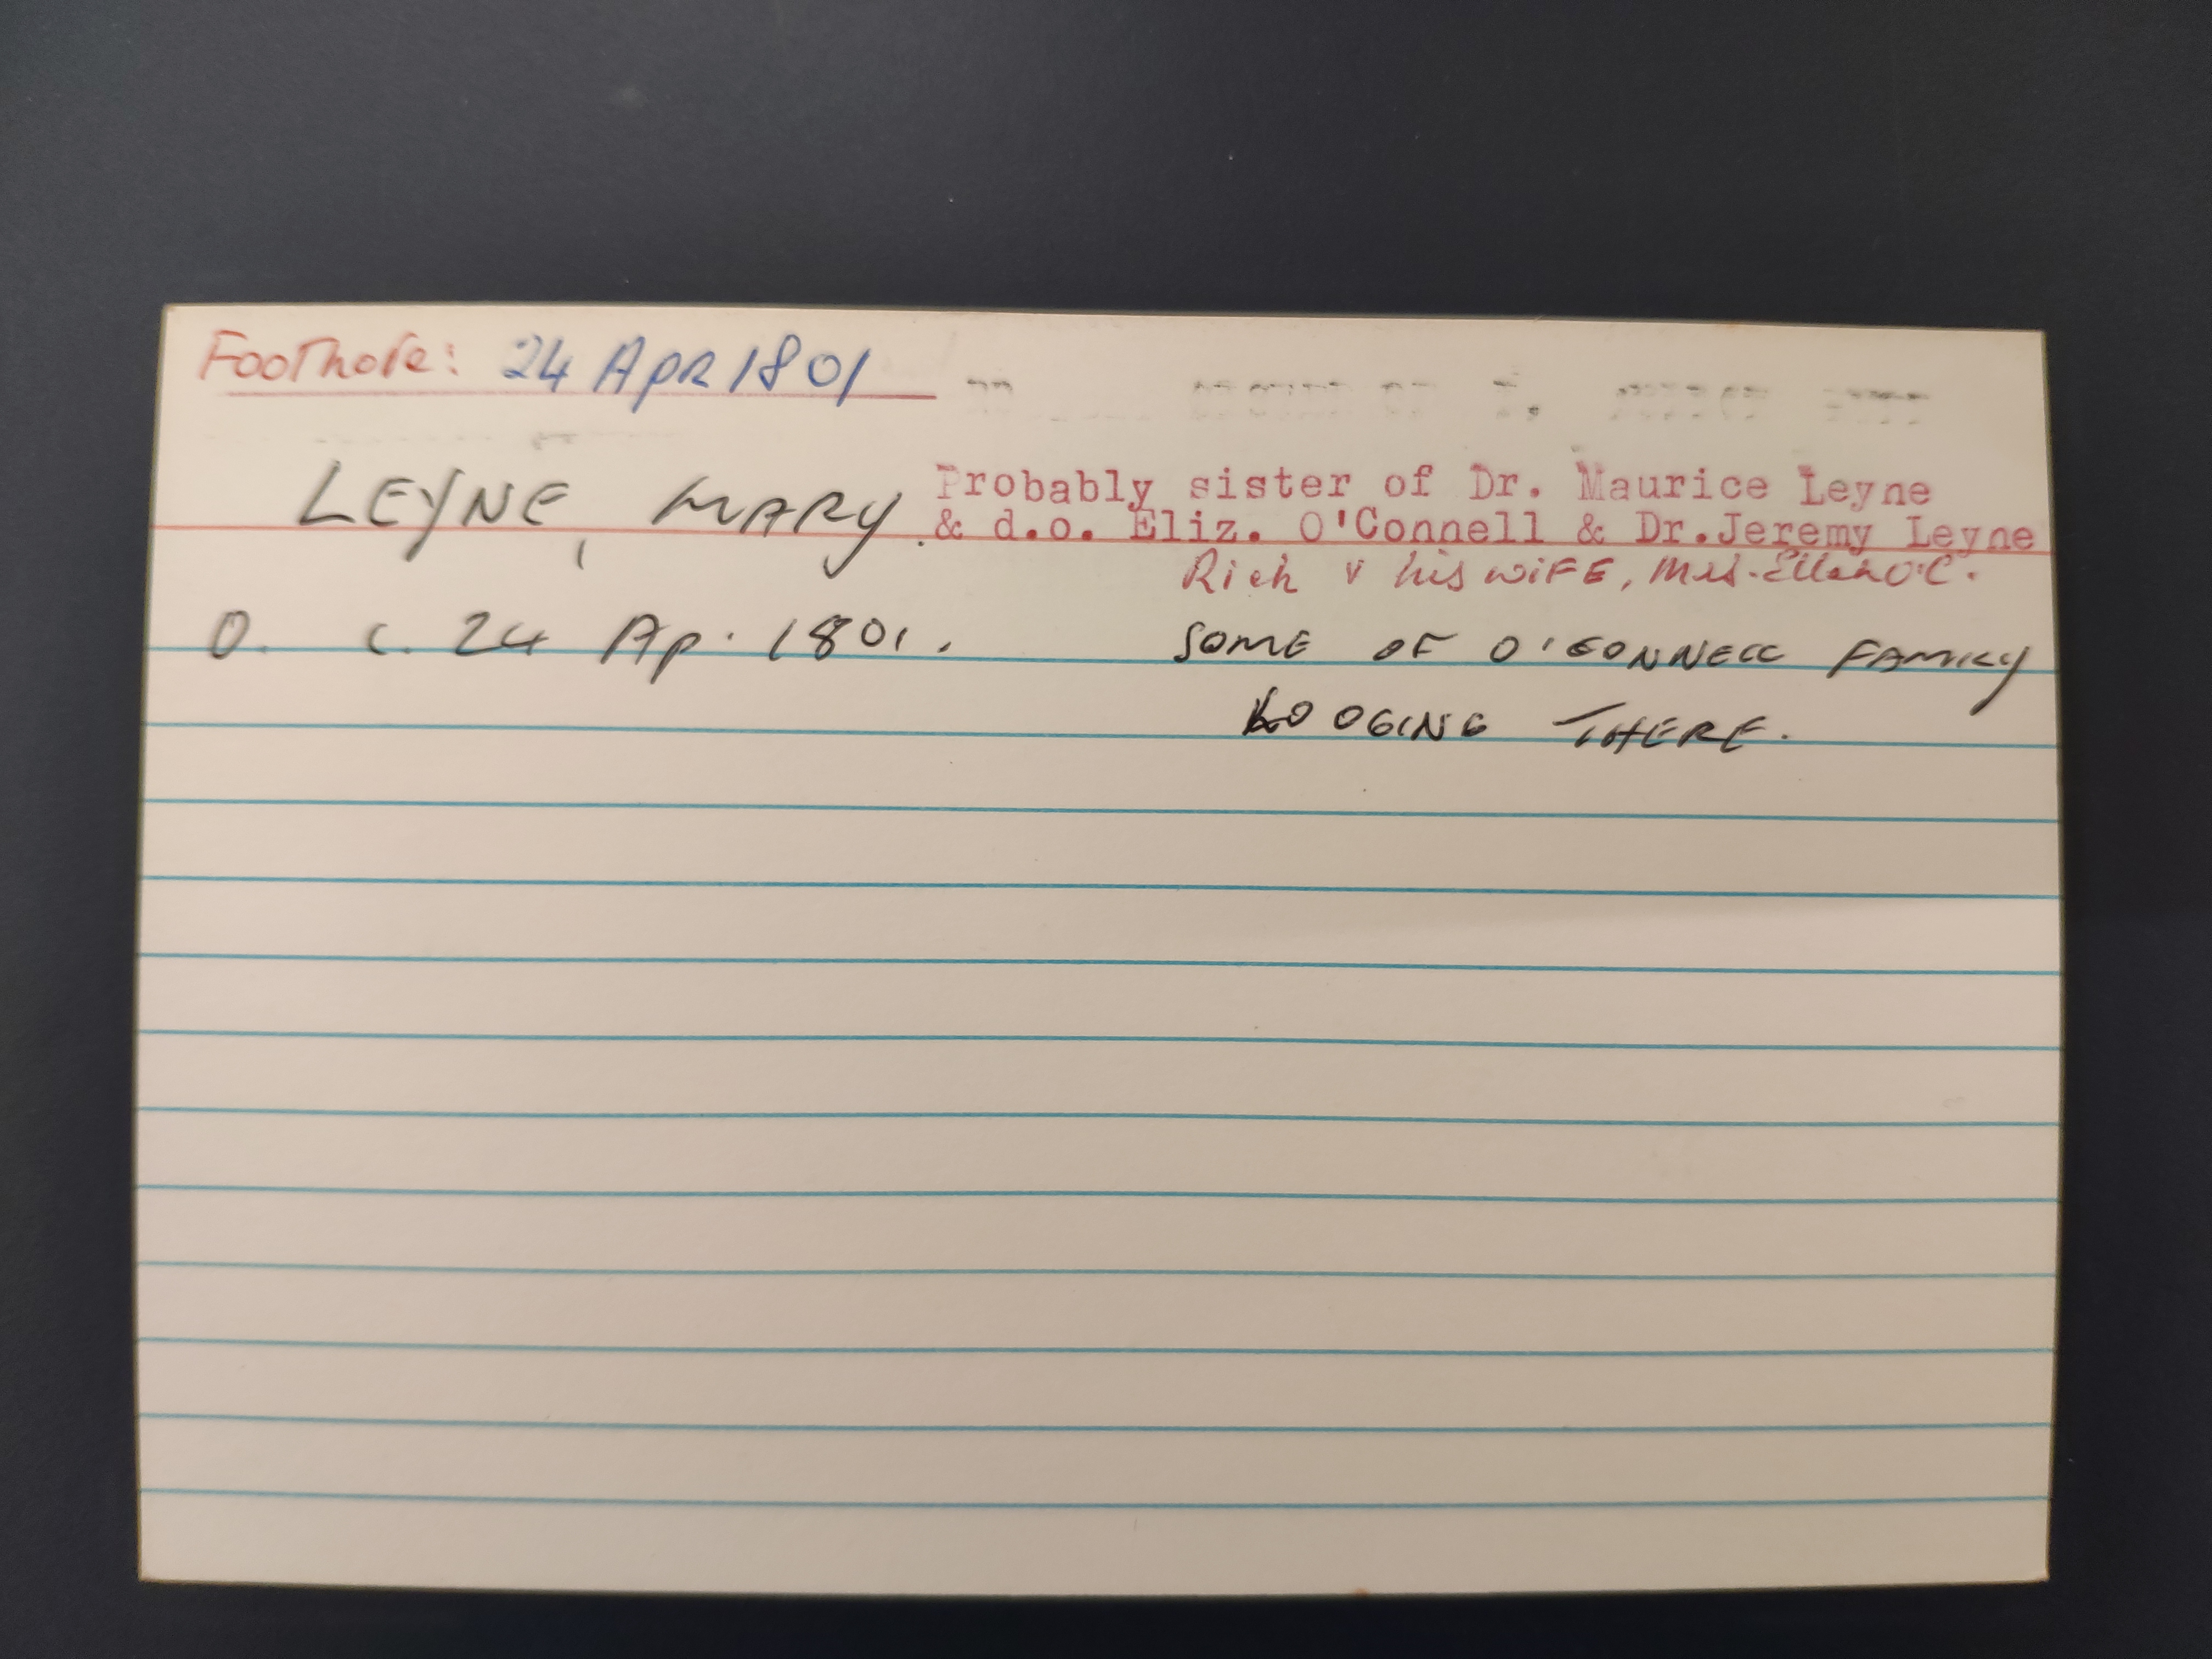 Footnote: 24 APR 1801
LEYNE, MARY. Probably sister of Dr. Maurice Leyne
& d.o. Eliz. O'Connell & Dr.Jeremy Leyne
Rich & his wife, Mrs. Ellen O'C.
O. c. 24 Ap. 1801. SOME OF O'CONNELL FAMILY
LODGING THERE.